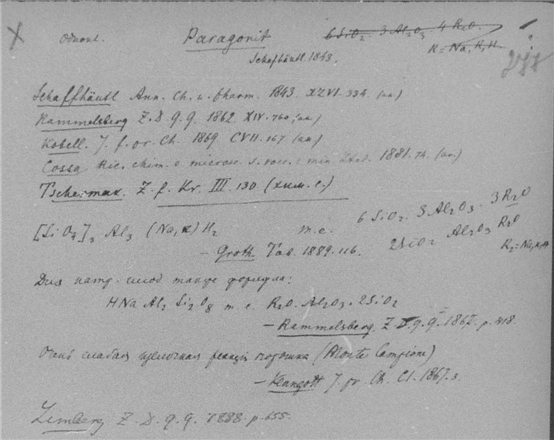 Paragonit 6SiO₂. 3Al₂O₃ 4R₂O.
Schafhäutl 1843. R=Na, K, H
Schaffhäutl Ann. Ch. u. Pharm. 1843. XLVI. 334. (ан)
Rammelsberg Z. D. g. G. 1862. XIV. 760. (ан)
Kobell. J. f. pr. Ch. 1869 CVII. 167 (ан)
Cossa. Ric. chim. e microsc. s. roc. e min 1881. 74. (ан)
Tschermak. Z. f. Kr. III. 130 (хим. с.)
[SiO₄]₃ Al₃ (Na, K) H₂ т. е. 6SiO₂. 3Al₂O₃. 3R₂O
2SiO₂ Al₂O₃ R₂O
– Groth. Tab. 1889. 116. R₂=Na, K, H
Для натр. слюд также формула:
HNa Al₂ Si₂O₈ т. е. R₂O. Al₂O₃. 2SiO₂
– Rammelsberg. Z. D. g. G. 1867. p. 418
Очень слабая щелочная реакция порошка (Monte Campione)
– Kenngott J. pr. Ch. CI. 1867. 3
Lemberg Z. D. g. G. 1888. p. 655.